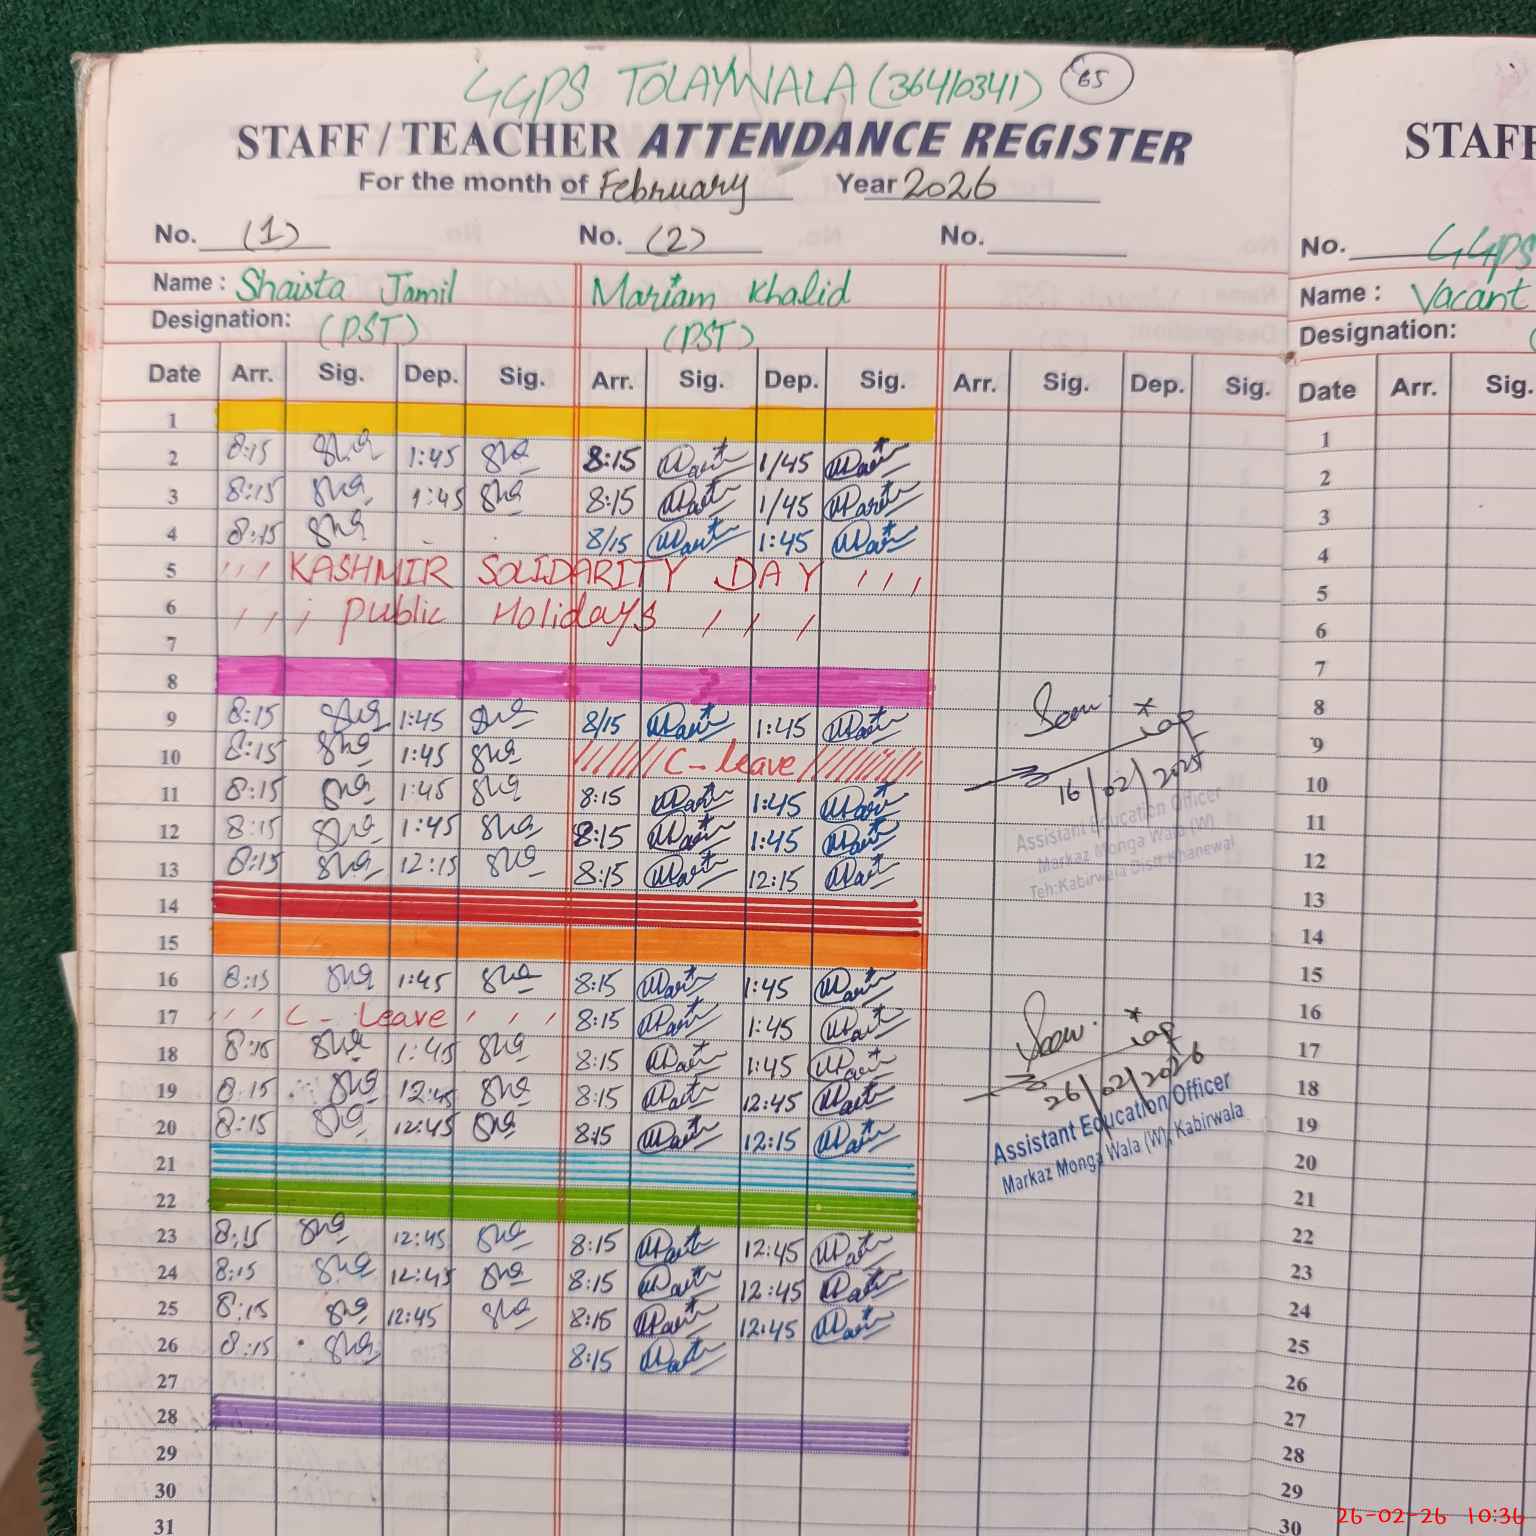 GGPS TOLAYWALA (36410341) 65
STAFF / TEACHER ATTENDANCE REGISTER
For the month of February Year 2026
No. (1) No. (2) No.
Name : Shaista Jamil Mariam Khalid
Designation: (PST) (PST)
Date Arr. Sig. Dep. Sig. Arr. Sig. Dep. Sig. Arr. Sig. Dep. Sig.
1
2 8:15 1:45 8:15 1/45
3 8:15 1:45 8:15 1/45
4 8:15 8/15 1:45
5 KASHMIR SOLIDARITY DAY
6 Public Holidays
7
8
9 8:15 1:45 8/15 1:45
10 8:15 1:45 C-leave
11 8:15 1:45 8:15 1:45
12 8:15 1:45 8:15 1:45
13 8:15 12:15 8:15 12:15
14
15
16 8:15 1:45 8:15 1:45
17 C- Leave 8:15 1:45
18 8:15 1:45 8:15 1:45
19 8:15 12:45 8:15 12:45
20 8:15 12:45 8:15 12:15
21
22
23 8:15 12:45 8:15 12:45
24 8:15 12:45 8:15 12:45
25 8:15 12:45 8:15 12:45
26 8:15 8:15
27
28
29
30
31
Seen
16/02/2025
Assistant Education Officer
Markaz Monga Wala (W)
Teh:Kabirwala Distt:Khanewal
Seen
26/02/2026
Assistant Education Officer
Markaz Monga Wala (W), Kabirwala
STAFF
No. GGPS
Name : Vacant
Designation:
Date Arr. Sig.
1
2
3
4
5
6
7
8
9
10
11
12
13
14
15
16
17
18
19
20
21
22
23
24
25
26
27
28
29
30
26-02-26 10:36